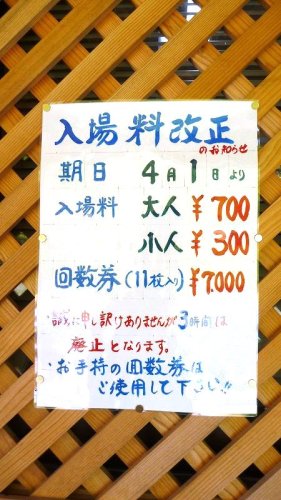 入場料改正
のお知らせ
期日 4月1日より
入場料 大人 ¥700
小人 ¥300
回数券(11枚入り)¥7,000
誠に申し訳けありませんが3時間は
廃止となります。
お手持の回数券は
ご使用して下さい!!